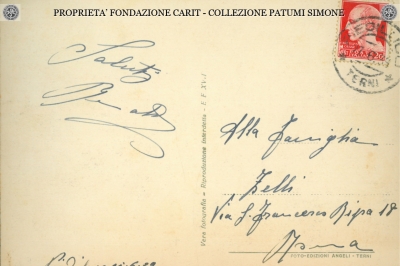 PROPRIETA' FONDAZIONE CARIT - COLLEZIONE PATUMI SIMONE
TERNI
Saluti
Vera fotografia - Riproduzione interdetta - E F XV-I
Alla Famiglia
Zelli
Via S. Francesco Ripa 18
Roma
FOTO-EDIZIONI ANGELI - TERNI